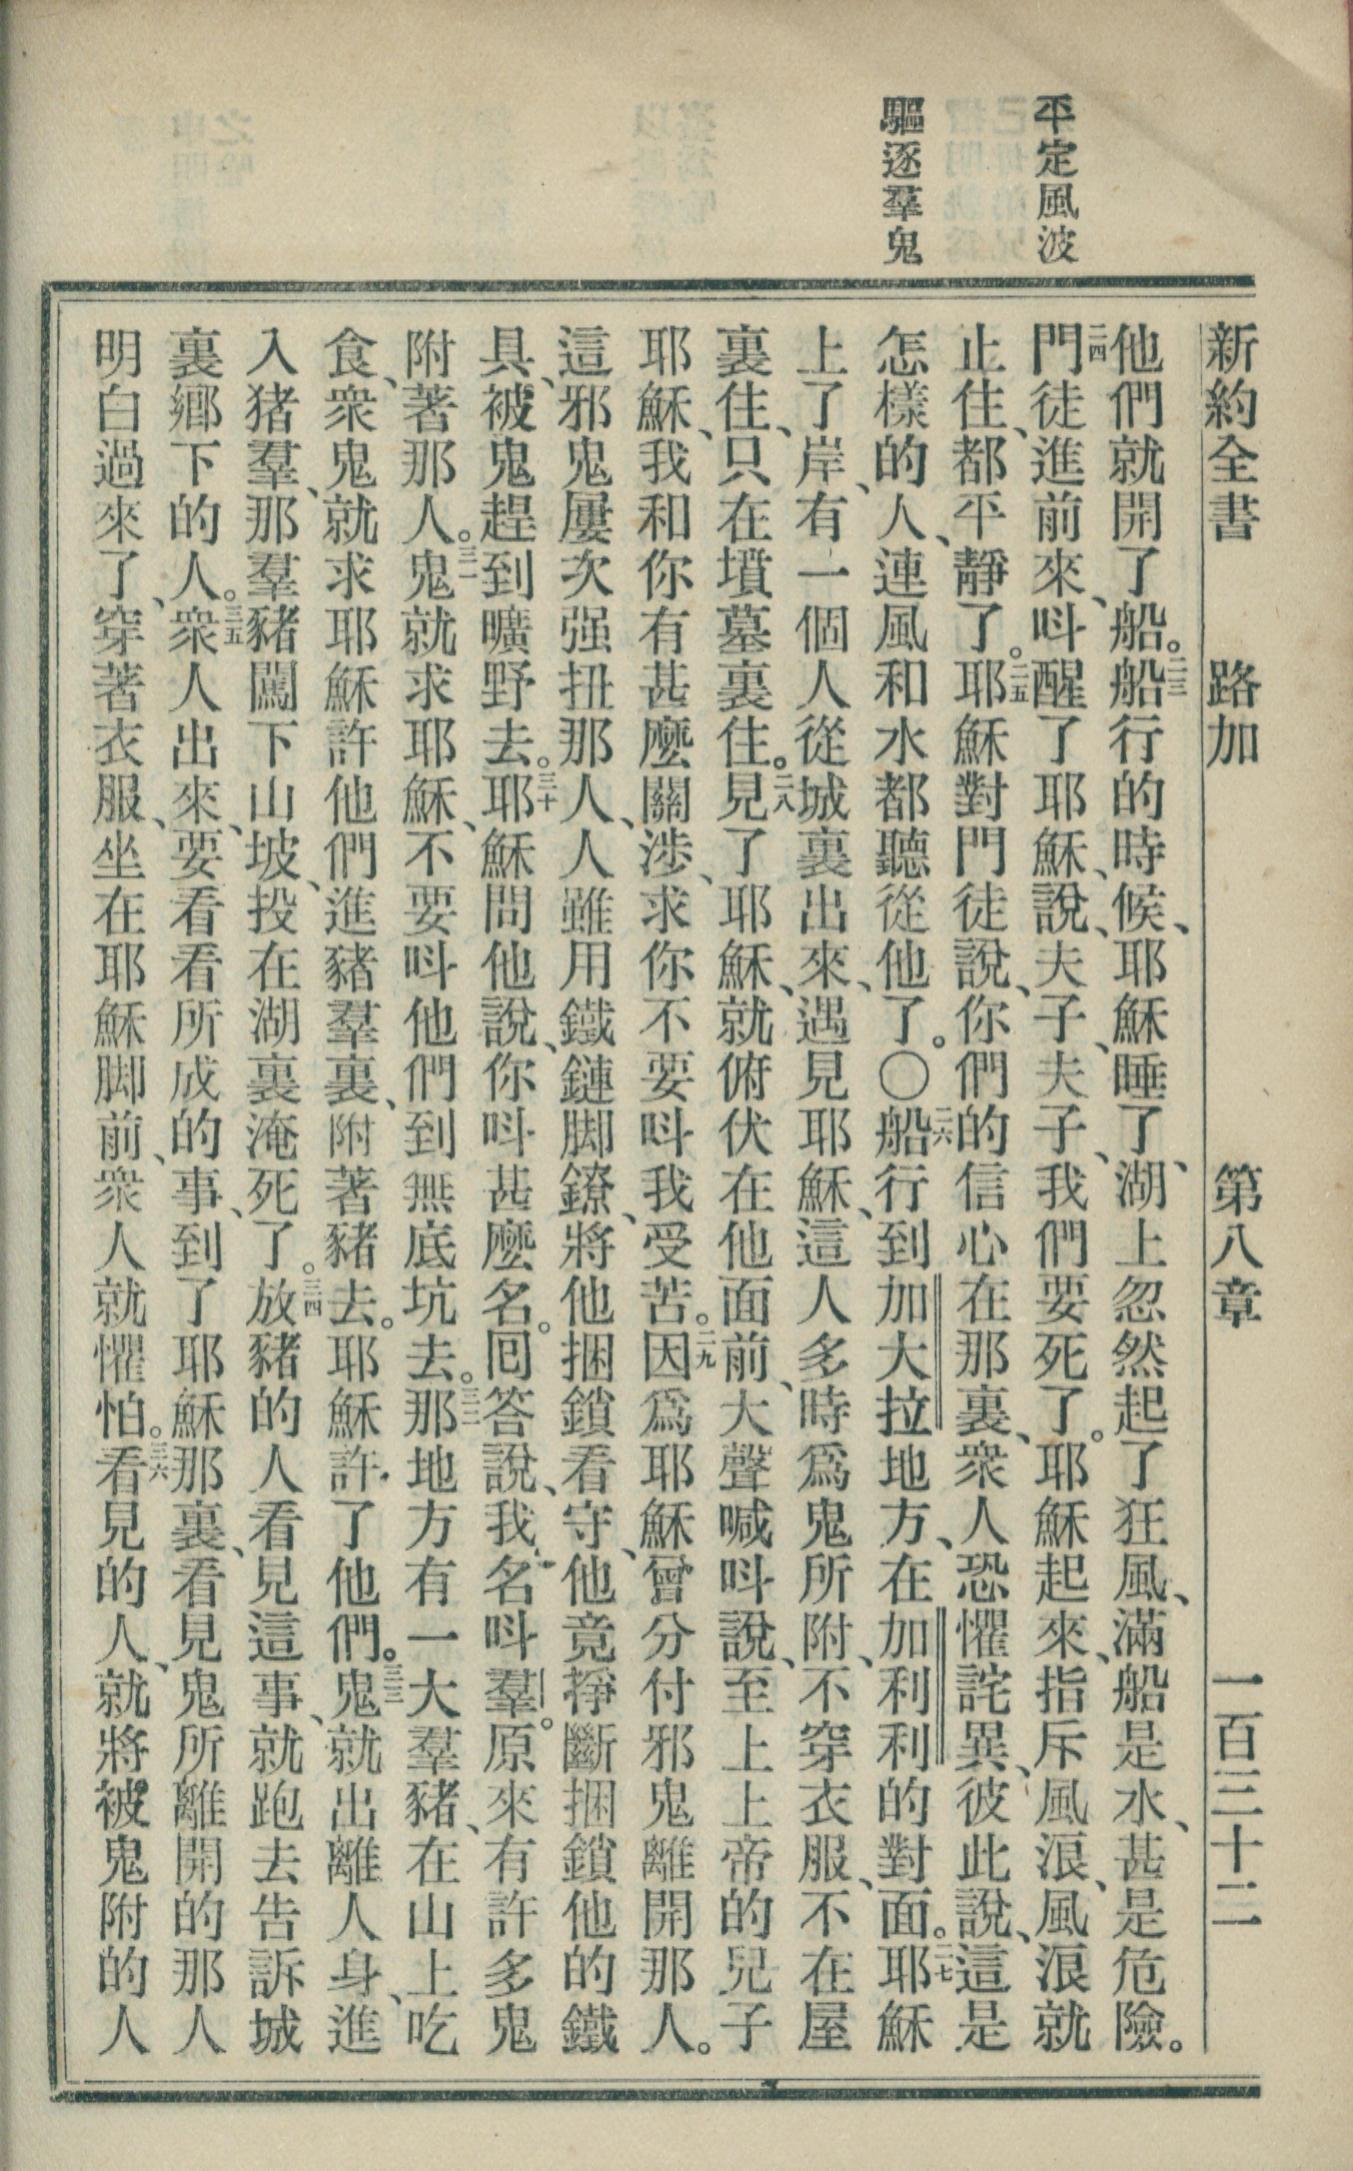 平定風波
驅逐羣鬼
新約全書 路加 第八章 一百三十二
他們就開了船。二三船行的時候、耶穌睡了、湖上忽然起了狂風、滿船是水、甚是危險。
二四門徒進前來、呌醒了耶穌、說、夫子、夫子、我們要死了。耶穌起來、指斥風浪、風浪就
止住、都平靜了。二五耶穌對門徒說、你們的信心在那裏、衆人恐懼詫異、彼此說、這是
怎樣的人、連風和水都聽從他了。〇二六船行到加大拉地方、在加利利的對面。二七耶穌
上了岸、有一個人從城裏出來、遇見耶穌、這人多時爲鬼所附、不穿衣服、不在屋
裏住、只在墳墓裏住。二八見了耶穌、就俯伏在他面前、大聲喊呌說、至上上帝的兒子
耶穌、我和你有甚麼關涉、求你不要呌我受苦。二九因爲耶穌曾分付邪鬼離開那人。
這邪鬼屢次强扭那人、人雖用鐵鏈脚鐐、將他捆鎖看守、他竟掙斷捆鎖他的鐵
具、被鬼趕到曠野去。三十耶穌問他說、你呌甚麼名。囘答說、我名呌羣。原來有許多鬼
附著那人。三一鬼就求耶穌、不要呌他們到無底坑去。三二那地方有一大羣豬、在山上吃
食、衆鬼就求耶穌許他們進豬羣裏、附著豬去。耶穌許了他們。三三鬼就出離人身、進
入猪羣、那羣豬闖下山坡、投在湖裏淹死了。三四放豬的人看見這事、就跑去告訴城
裏鄉下的人。三五衆人出來、要看看所成的事、到了耶穌那裏、看見鬼所離開的那人
明白過來了、穿著衣服、坐在耶穌脚前、衆人就懼怕。三六看見的人、就將被鬼附的人